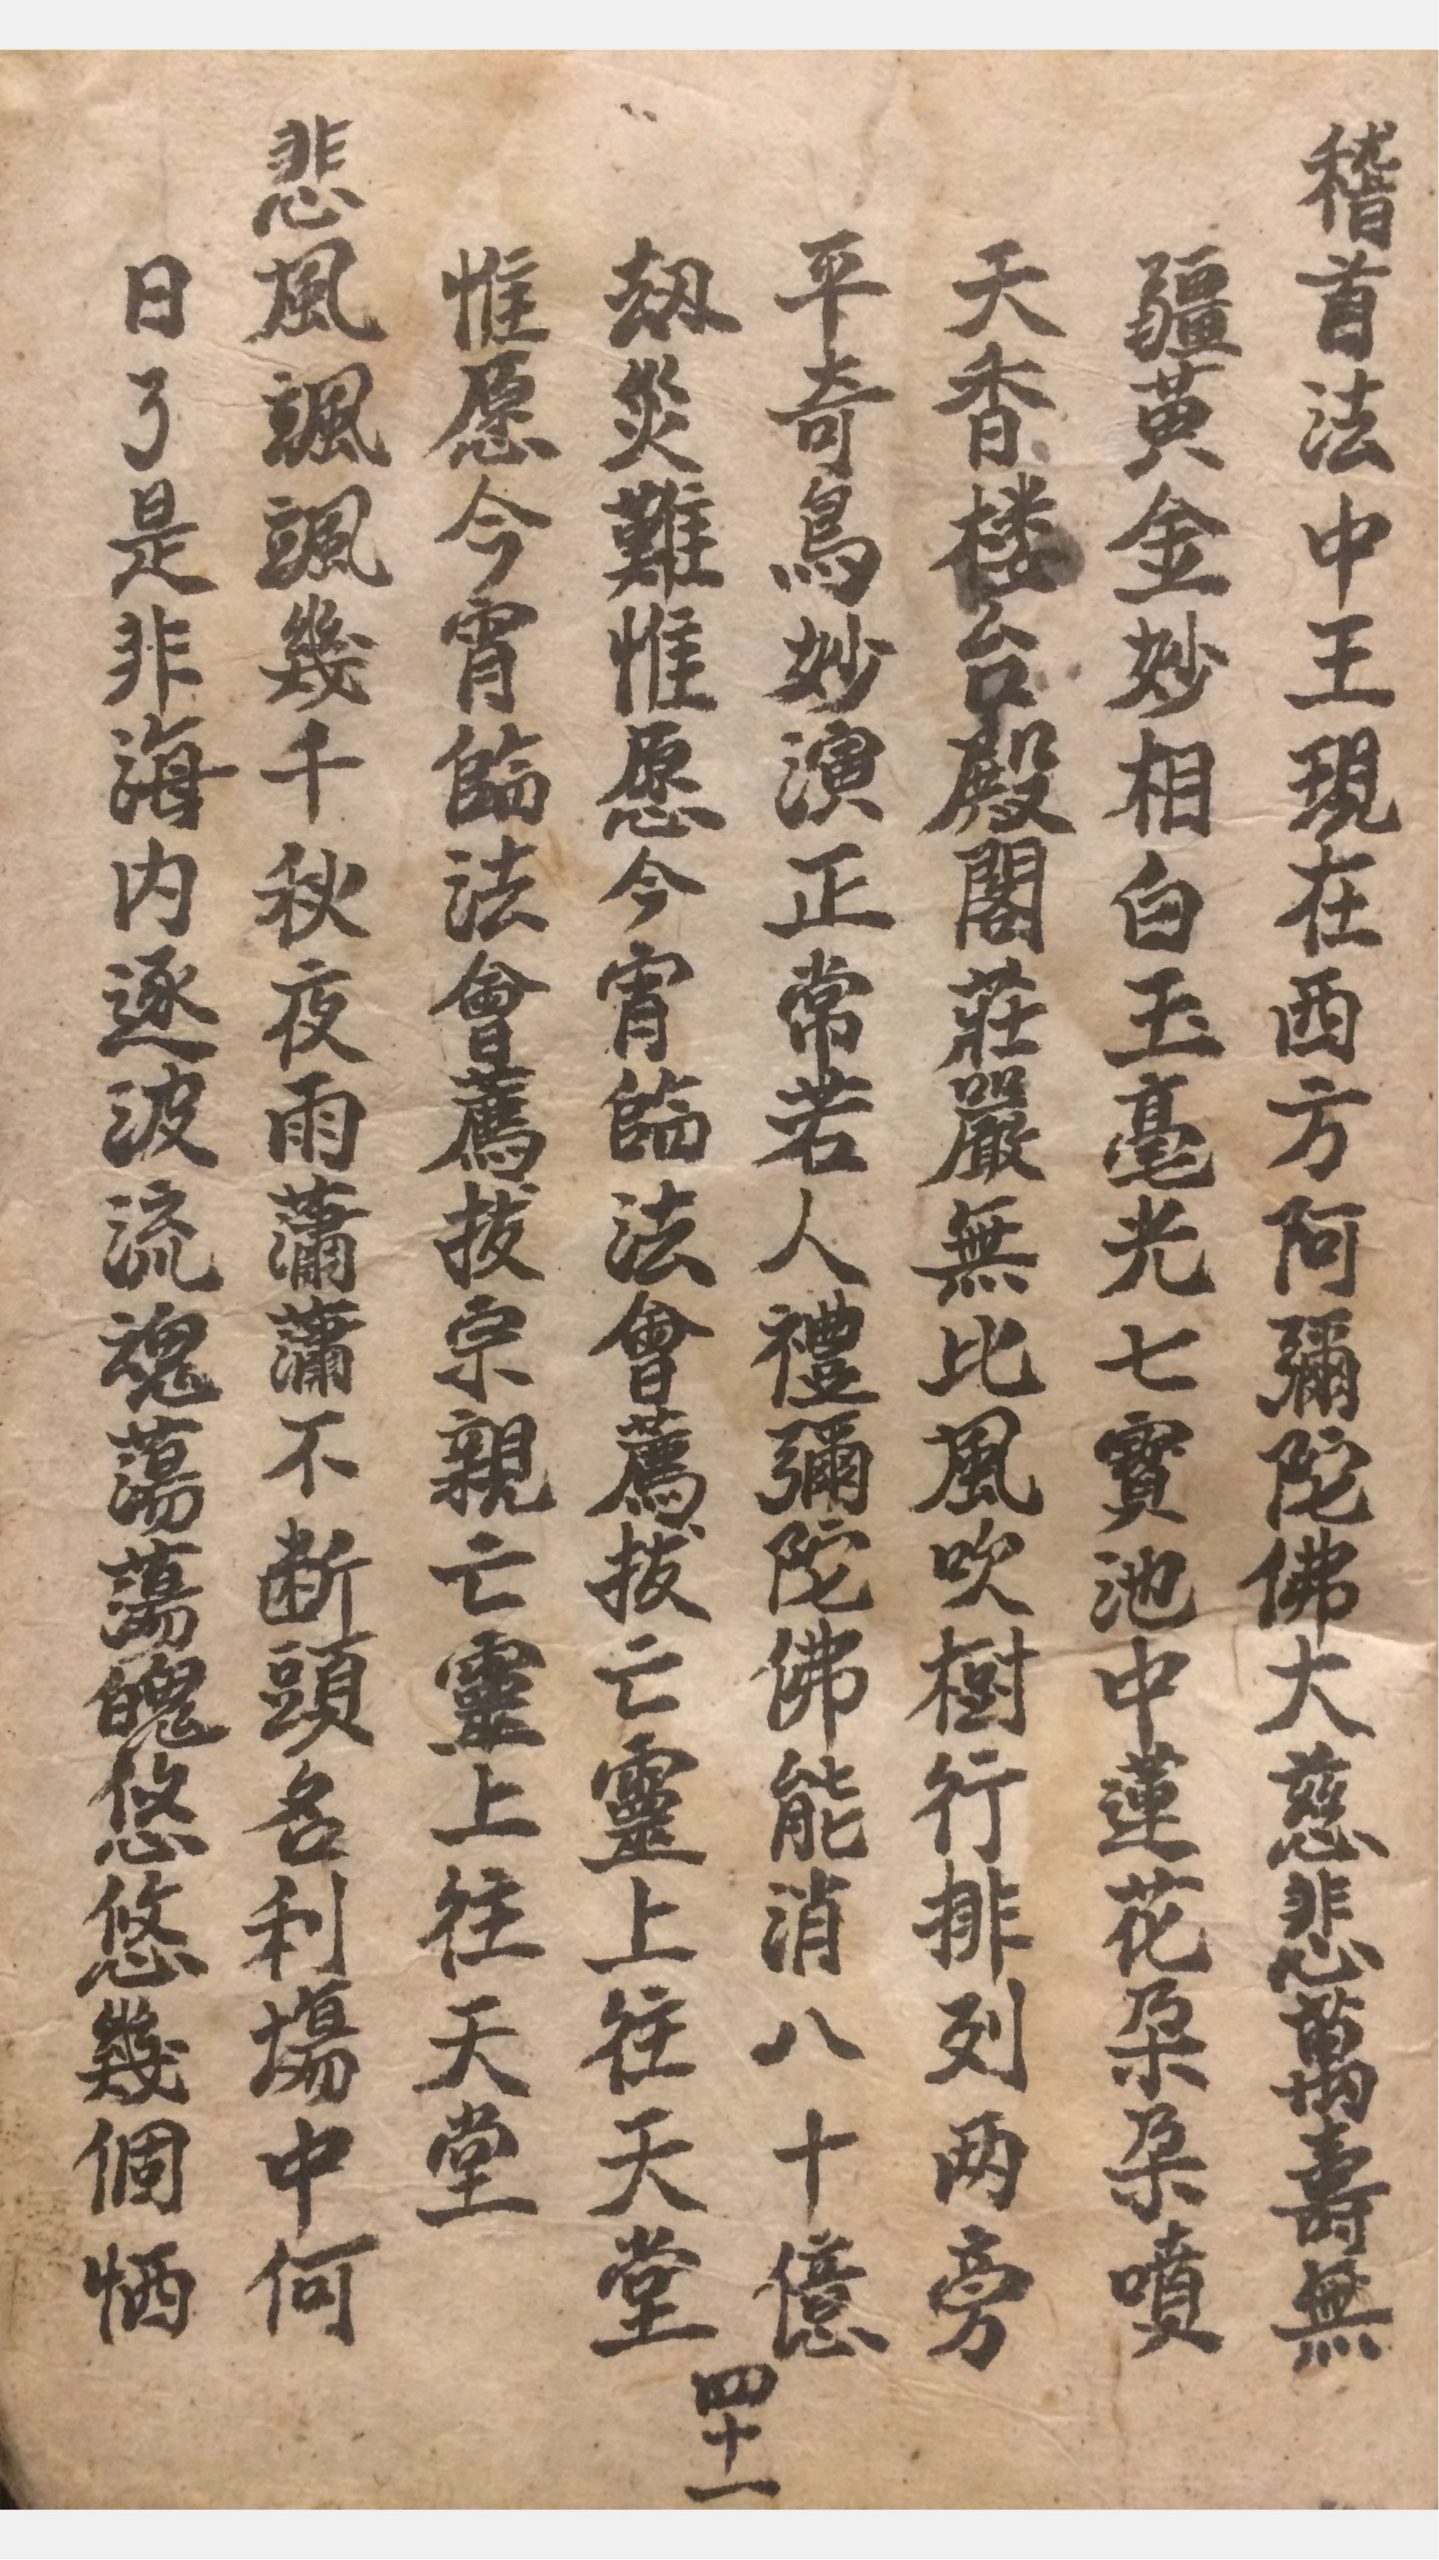 稽首法中王現在西方阿彌陀佛大慈悲萬壽無
疆黃金妙相白玉毫光七寶池中蓮花朵朵噴
天香楼台殿閣莊嚴無比風吹樹行排列两旁
平奇鳥妙演正常若人禮彌陀佛能消八十億
劫災難惟愿今宵臨法會薦拔亡靈上往天堂
惟愿今宵臨法會薦拔宗親亡靈上往天堂
悲風飒飒幾千秋夜雨瀟瀟不断頭名利場中何
日了是非海内逐波流魂蕩蕩魄悠悠幾個
四十一